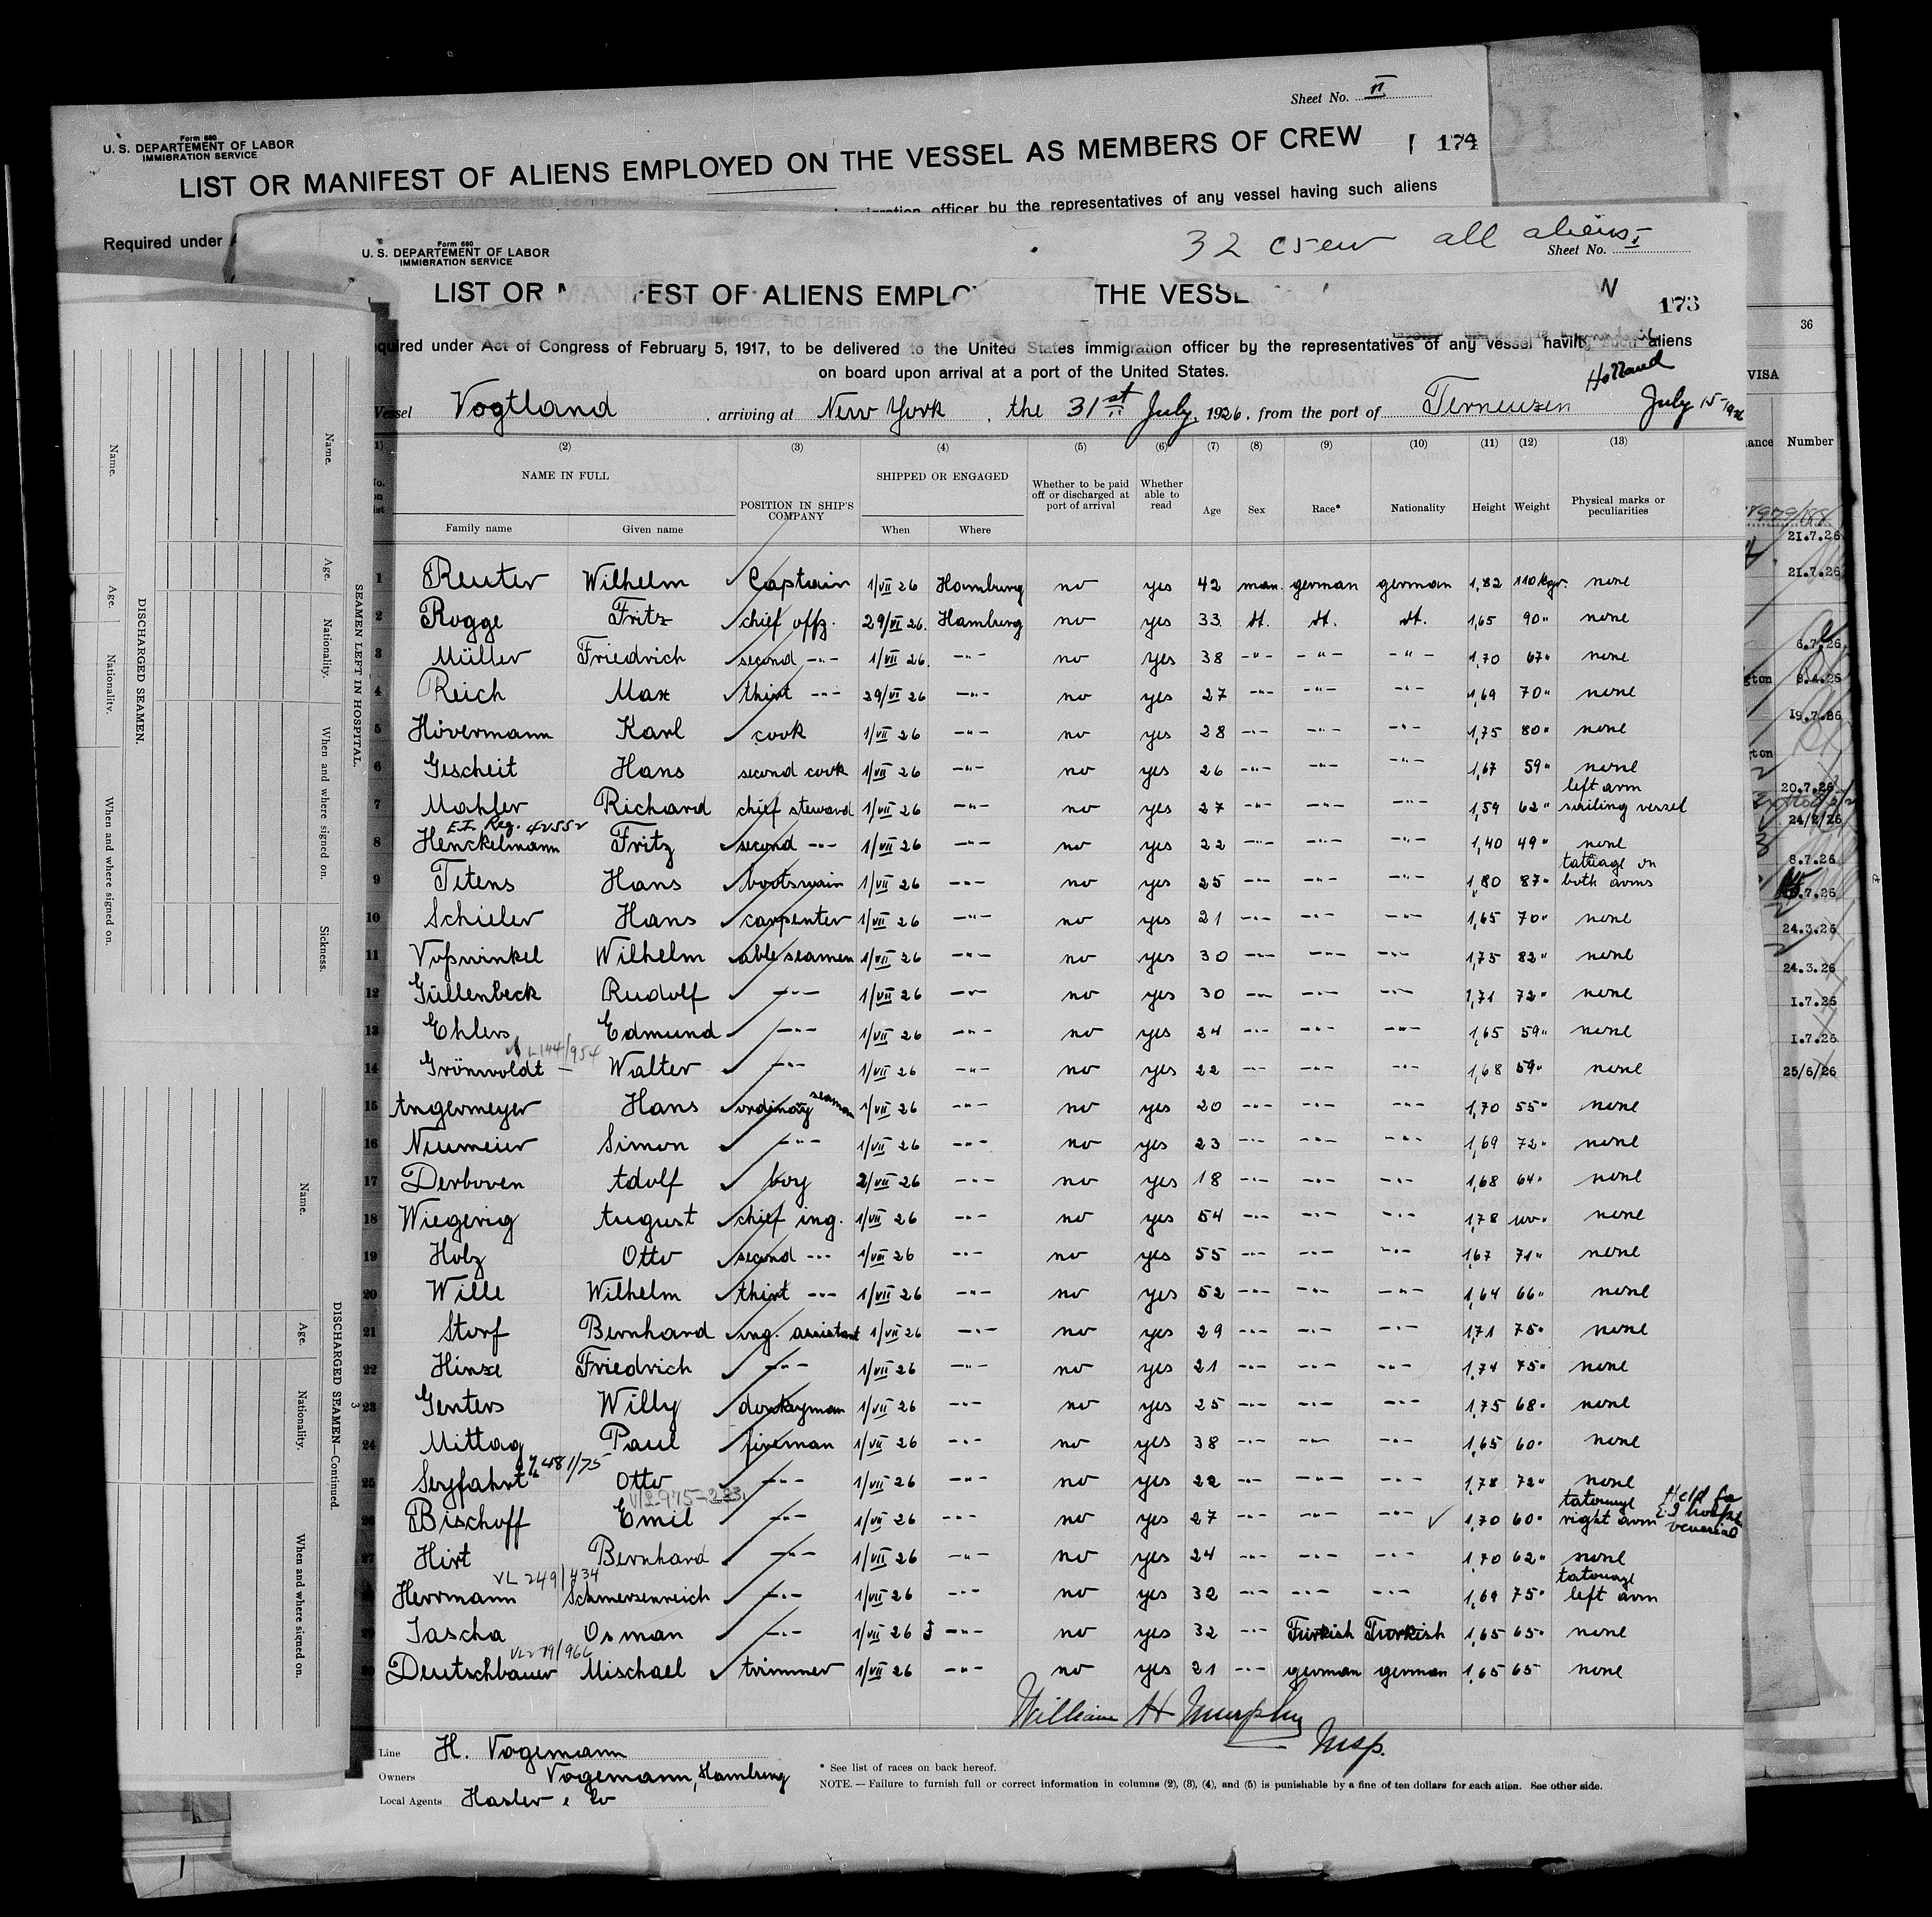 Sheet No. II
Form 680
U. S. DEPARTEMENT OF LABOR
IMMIGRATION SERVICE
LIST OR MANIFEST OF ALIENS EMPLOYED ON THE VESSEL AS MEMBERS OF CREW
174
officer by the representatives of any vessel having such aliens
Required under
32 crew all aliens
Form 680
U. S. DEPARTEMENT OF LABOR
IMMIGRATION SERVICE
Sheet No. I
LIST OR EST OF ALIENS EMPLO THE VESSE
173
quired under Act of Congress of February 5, 1917, to be delivered to the United States immigration officer by the representatives of any vessel having such aliens
on board upon arrival at a port of the United States.
Holland
Vessel Vogtland , arriving at New York , the 31st July, 1926, from the port of Terneuzen July 15-1926
(1) (2) (3) (4) (5) (6) (7) (8) (9) (10) (11) (12) (13)
No. on list NAME IN FULL Family name Given name POSITION IN SHIP'S COMPANY SHIPPED OR ENGAGED When Where Whether to be paid off or discharged at port of arrival Whether able to read Age Sex Race* Nationality Height Weight Physical marks or peculiarities
1 Reuter Wilhelm Captain 1/VII 26 Hamburg no yes 42 man. german german 1,82 110 kgr. none
2 Rogge Fritz chief offz. 29/VI 26. Hamburg no yes 33 dt. dt. dt. 1,65 90" none
3 Müller Friedrich second -"- 1/VII 26. -"- no yes 38 -"- -"- -"- 1,70 67" none
4 Reich Max thirt -"- 29/VI 26 -"- no yes 27 -"- -"- -"- 1,69 70" none
5 Hövermann Karl cook 1/VII 26 -"- no yes 28 -"- -"- -"- 1,75 80" none
6 Gescheit Hans second cook 1/VII 26 -"- no yes 26 -"- -"- -"- 1,67 59" none
7 Mahler Richard chief steward 1/VII 26 -"- no yes 27 -"- -"- -"- 1,59 62" left arm sailing vessel
E.I. Reg. 42552
8 Henckelmann Fritz second -"- 1/VII 26 -"- no yes 22 -"- -"- -"- 1,40 49" none
9 Titens Hans bootswain 1/VII 26 -"- no yes 25 -"- -"- -"- 1,80 87" tatuage on both arms
10 Schieler Hans carpenter 1/VII 26 -"- no yes 21 -"- -"- -"- 1,65 70" none
11 Voßwinkel Wilhelm able seamen 1/VII 26 -"- no yes 30 -"- -"- -"- 1,75 82" none
12 Güllenbeck Rudolf -"- 1/VII 26 -"- no yes 30 -"- -"- -"- 1,71 72" none
13 Ehlers Edmund -"- 1/VII 26 -"- no yes 24 -"- -"- -"- 1,65 59" none
VL 144/954
14 Grönwoldt Walter -"- 1/VII 26 -"- no yes 22 -"- -"- -"- 1,68 59" none
15 Angermeyer Hans ordinary seaman 1/VII 26 -"- no yes 20 -"- -"- -"- 1,70 55" none
16 Neumeier Simon -"- 1/VII 26 -"- no yes 23 -"- -"- -"- 1,69 72" none
17 Derboven Adolf boy 2/VII 26 -"- no yes 18 -"- -"- -"- 1,68 64" none
18 Wiegerig August chief ing. 1/VII 26 -"- no yes 54 -"- -"- -"- 1,78 100" none
19 Holz Otto second -"- 1/VII 26 -"- no yes 55 -"- -"- -"- 1,67 71" none
20 Wille Wilhelm thirt -"- 1/VII 26 -"- no yes 52 -"- -"- -"- 1,64 66" none
21 Storf Bernhard ing. assistant 1/VII 26 -"- no yes 29 -"- -"- -"- 1,71 75" none
22 Hinze Friedrich -"- 1/VII 26 -"- no yes 21 -"- -"- -"- 1,74 75" none
23 Genters Willy donkeyman 1/VII 26 -"- no yes 25 -"- -"- -"- 1,75 68" none
24 Mittag Paul fireman 1/VII 26 -"- no yes 38 -"- -"- -"- 1,65 60" none
481/75
25 Seyfahrt Otto -"- 1/VII 26 -"- no yes 22 -"- -"- -"- 1,78 72" none
26 Bischoff Emil -"- 1/VII 26 -"- no yes 27 -"- -"- -"- 1,70 60" tatouage right arm Held for E.I. hospt. venereal
27 Hirt Bernhard -"- 1/VII 26 -"- no yes 24 -"- -"- -"- 1,70 62" none
VL 249/434
28 Herrmann Schmerzenreich -"- 1/VII 26 -"- no yes 32 -"- -"- -"- 1,69 75" tatouage left arm
29 Jascha Osman -"- 1/VII 26 -"- no yes 32 -"- Turkish Turkish 1,65 65" none
30 Deutschbauer Mischael trimmer 1/VII 26 -"- no yes 21 -"- german german 1,65 65 none
William H Murphy
Insp.
Line H. Vogemann
Owners Vogemann, Hamburg
Local Agents Hasler & Co
* See list of races on back hereof.
NOTE. — Failure to furnish full or correct information in columns (2), (3), (4), and (5) is punishable by a fine of ten dollars for each alien. See other side.
SEAMEN LEFT IN HOSPITAL.
Name. Age. Nationality. When and where signed on. Sickness.
DISCHARGED SEAMEN.
Name. Age. Nationality. When and where signed on.
DISCHARGED SEAMEN—Continued.
Name. Age. Nationality. When and where signed on.
3
36
VISA
Number
21.7.26
21.7.26
6.7.26
8.4.26
19.7.26
20.7.26
24/2/26
8.7.26
24.3.26
24.3.26
1.7.26
1.7.26
25/6/26